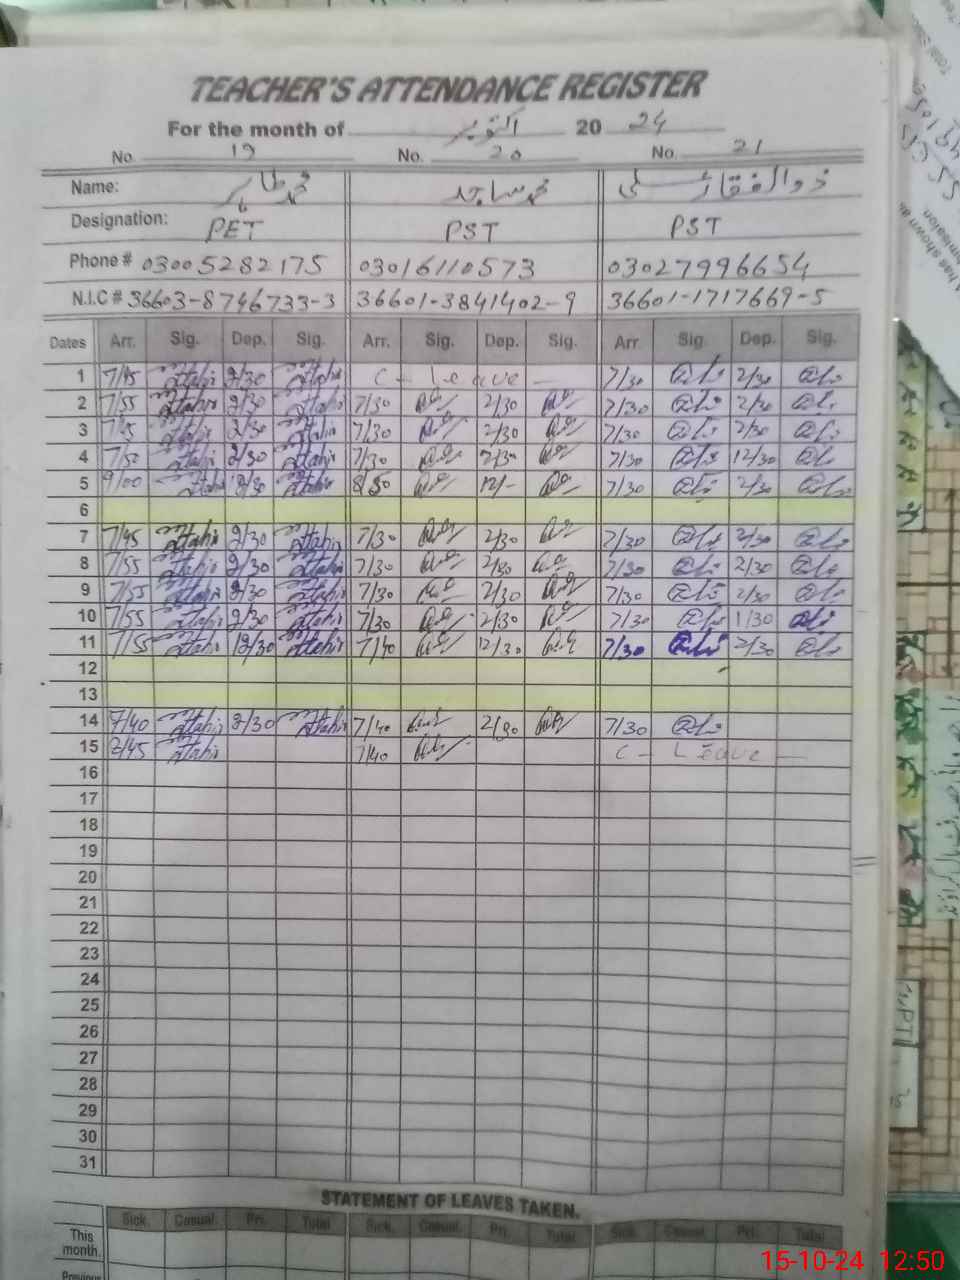 TEACHER'S ATTENDANCE REGISTER
For the month of اکتوبر 20 24
No. 19 No. 20 No. 21
Name: محمد طاہر محمد ساجد ذوالفقار علی
Designation: PET PST PST
Phone # 03005282175 03016110573 03027996654
N.I.C # 36603-8746733-3 36601-3841402-9 36601-1717669-5
Dates Arr. Sig. Dep. Sig. Arr. Sig. Dep. Sig. Arr. Sig. Dep. Sig.
1 7/45 Mtahir 2/30 Mtahir C - Leave - 7/30 2/30
2 7/55 Mtahir 2/30 Mtahir 7/30 2/30 7/30 2/30
3 7/45 Mtahir 2/30 Mtahir 7/30 2/30 7/30 2/30
4 7/50 Mtahir 2/30 Mtahir 7/30 2/30 7/30 12/30
5 9/00 Mtahir Mtahir 8/30 12/- 7/30 2/30
6
7 7/45 Mtahir 2/30 Mtahir 7/30 2/30 7/30 2/30
8 7/55 Mtahir 2/30 Mtahir 7/30 2/30 7/30 2/30
9 7/55 Mtahir 2/30 Mtahir 7/30 2/30 7/30 2/30
10 7/55 Mtahir 2/30 Mtahir 7/30 2/30 7/30 1/30
11 7/55 Mtahir 12/30 Mtahir 7/40 12/30 7/30 2/30
12
13
14 7/40 Mtahir 2/30 Mtahir 7/40 2/30 7/30
15 Mtahir 7/40 C - Leave -
16
17
18
19
20
21
22
23
24
25
26
27
28
29
30
31
STATEMENT OF LEAVES TAKEN.
Sick. Casual. Pri. Total Sick. Casual. Pri. Total Sick. Casual. Pri. Total
This month.
Previous
15-10-24 12:50